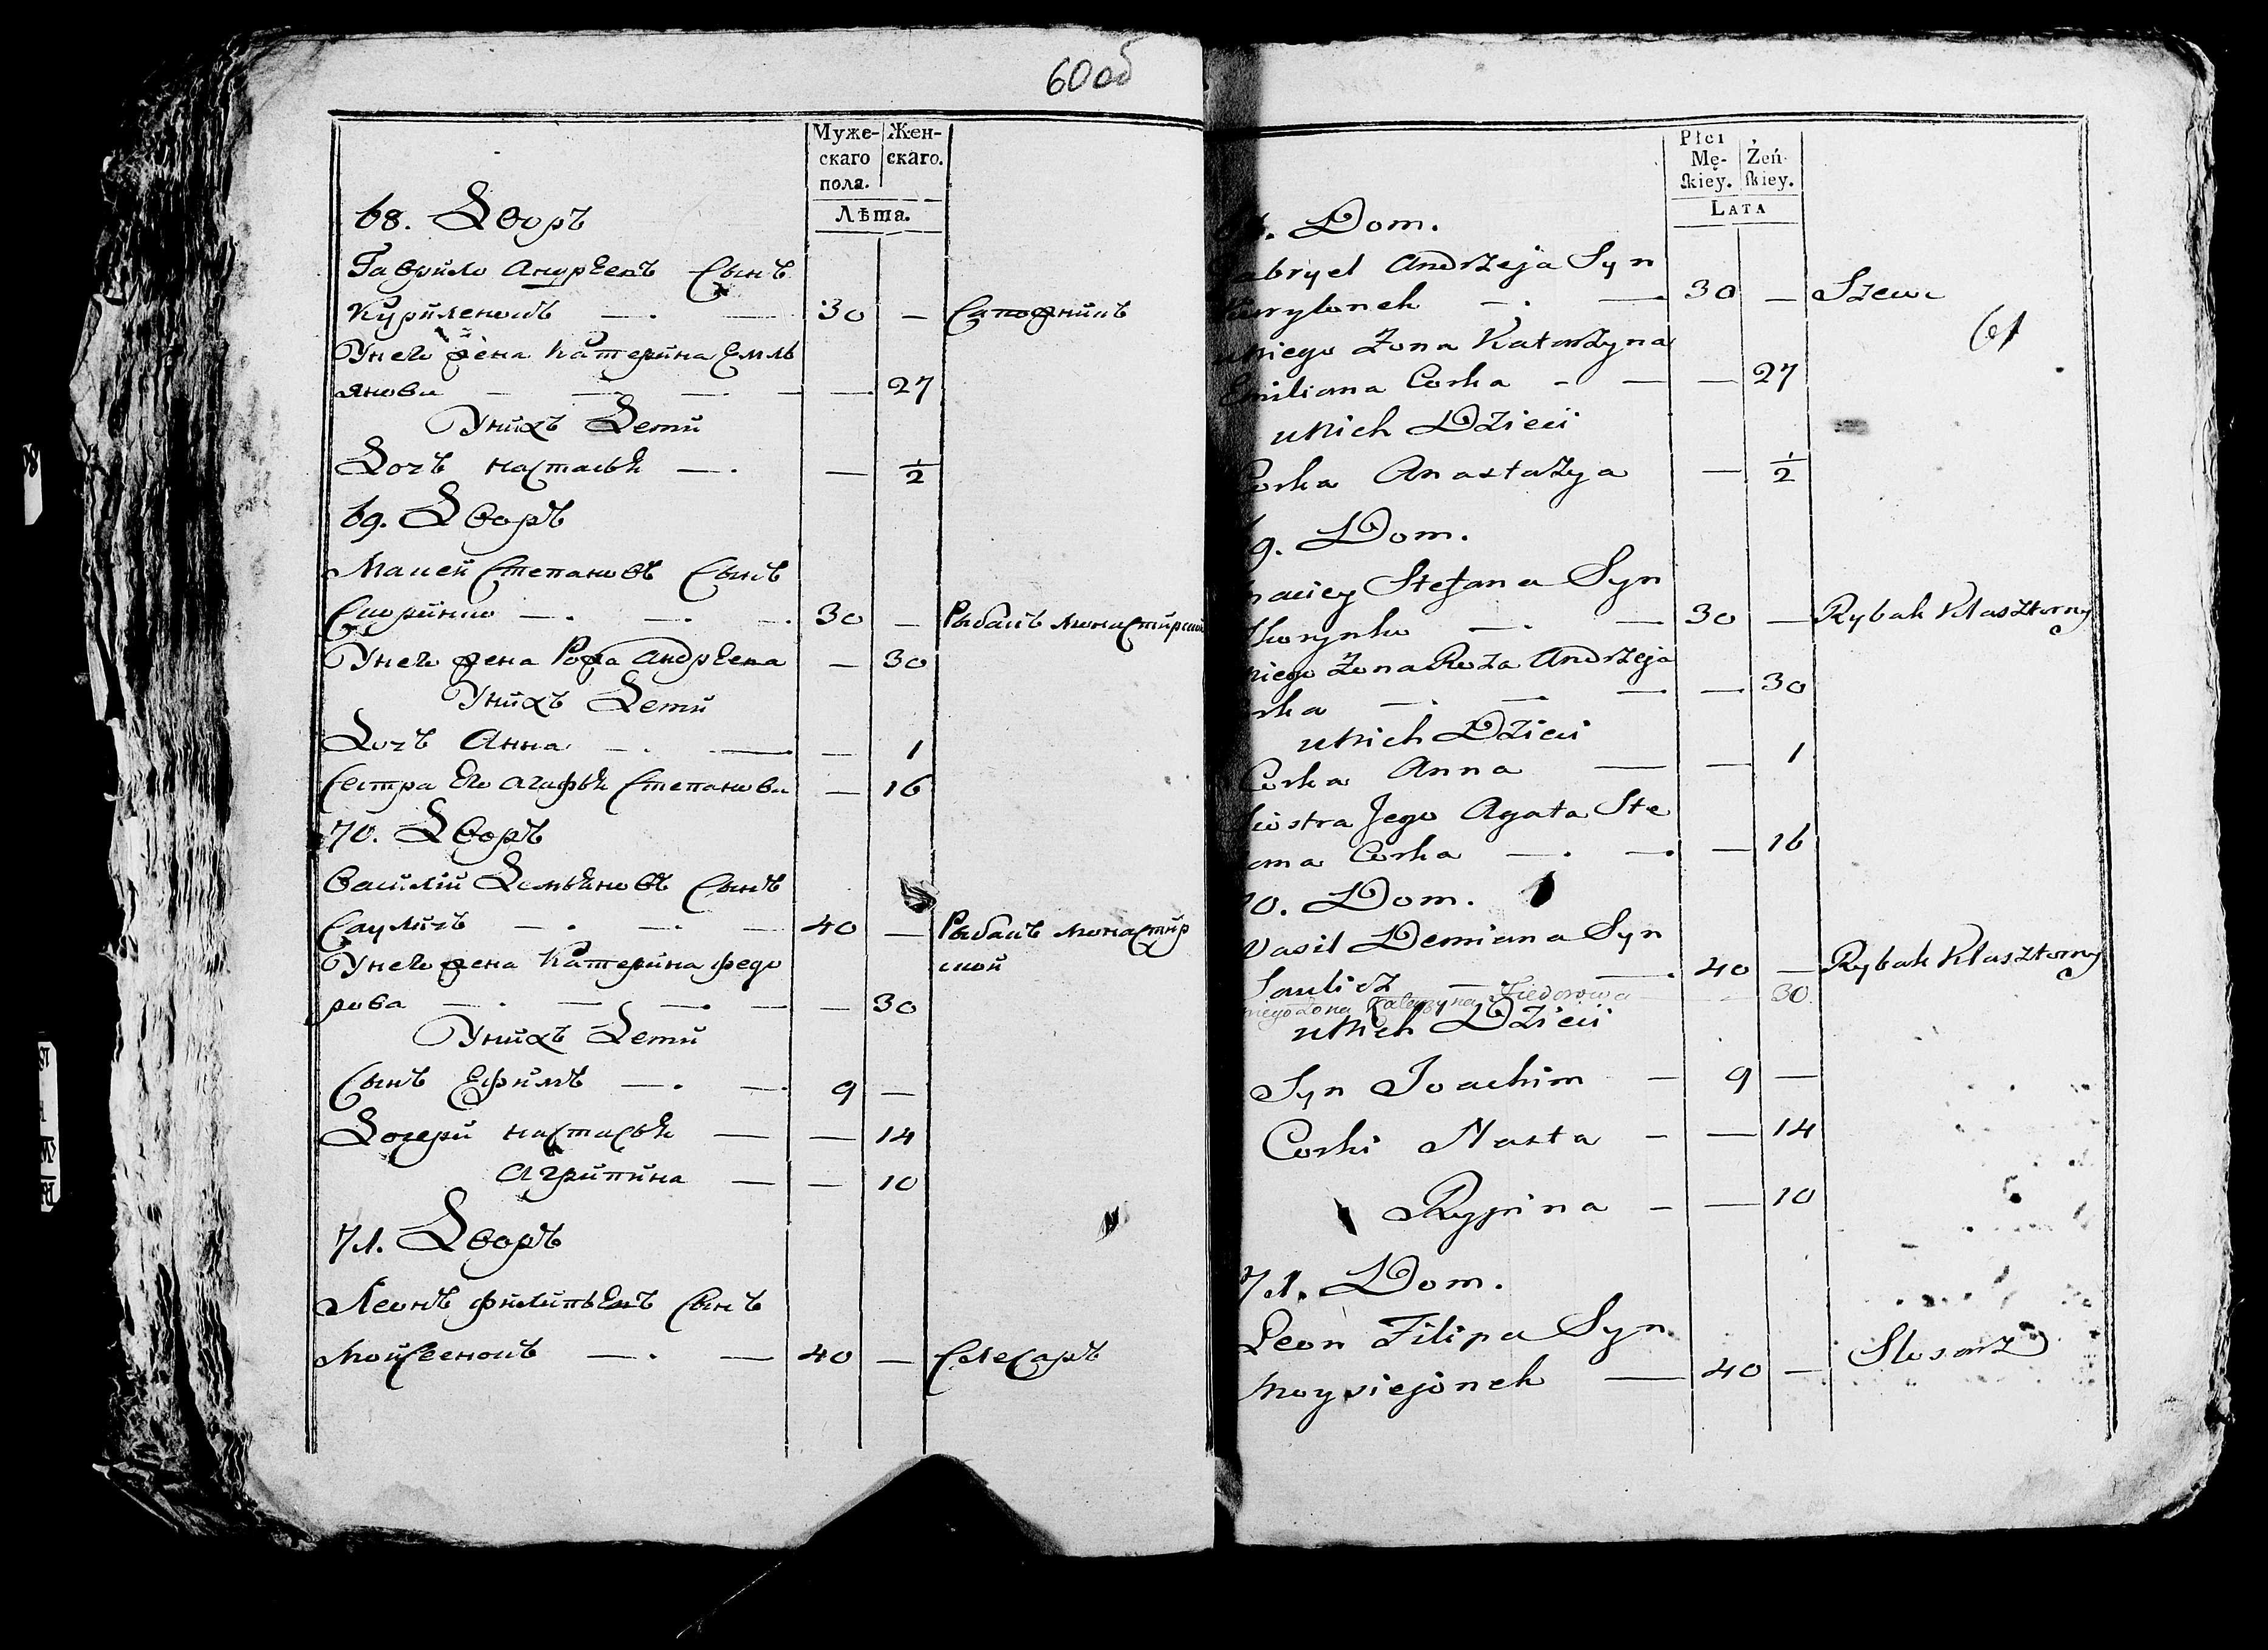 60 об
Муже-
скаго
пола.
Жен-
скаго.
Лѣта.
68. Дворъ
Гаврило Андрѣевъ Сынъ
Куриленокъ — . — 30 — Сапожникъ
Унего жена Катерина Емль
янова — — — — — 27
Унихъ Дети
Дочъ настасья — . — 1/2
69. Дворъ
Мацей Степановъ Сынъ
Скоринко — . — . — . 30 — Рыбакъ монастирской
Унего жена Рожа Андрѣева — 30
Унихъ Дети
Дочъ Анна — . — — 1
Сестра Его агафья Степанова — 16
70. Дворъ
Василій Демьяновъ Сынъ
Сауличъ — . — . — 40 — Рыбакъ монастир
ской
Унего жена Катерина федо
рова — . — — . — — 30
Унихъ Дети
Сынъ Ефимъ — . — . 9 —
Дочери настасья — — 14
Агрипина — — 10
71. Дворъ
Леонъ филипьевъ Сынъ
Мойсеенокъ — . — 40 — Слесаръ
61
Płci
Mę-
skiey.
Żeń-
skiey.
LATA
. Dom.
abryel Andrzeja Syn
urylonek — . — 30 — Szewc
uniego Zona Katarzyna
Emiliana Corka - — — 27
unich Dzieci
Corka Anastazya — 1/2
9. Dom.
aciey Stefana Syn
Skorynko — . — 30 — Rybak Klasztorny
niego Zona Roza Andrzeja
rka — . — . — — 30
unich Dzieci
Corka Anna — — 1
Siostra Jego Agata Ste
ana Corka — . — . — 16
70. Dom.
Wasil Demiana Syn
Saulicz — . — . 40 — Rybak Klasztorny
niego Zona Katarzyna Fiedorowa — 30.
unich Dzieci
Syn Joachim — 9 —
Corki Nasta - — 14
Rypina - — 10
71. Dom.
Leon Filipa Syn
Moysiejonek — 40 — Slosarz